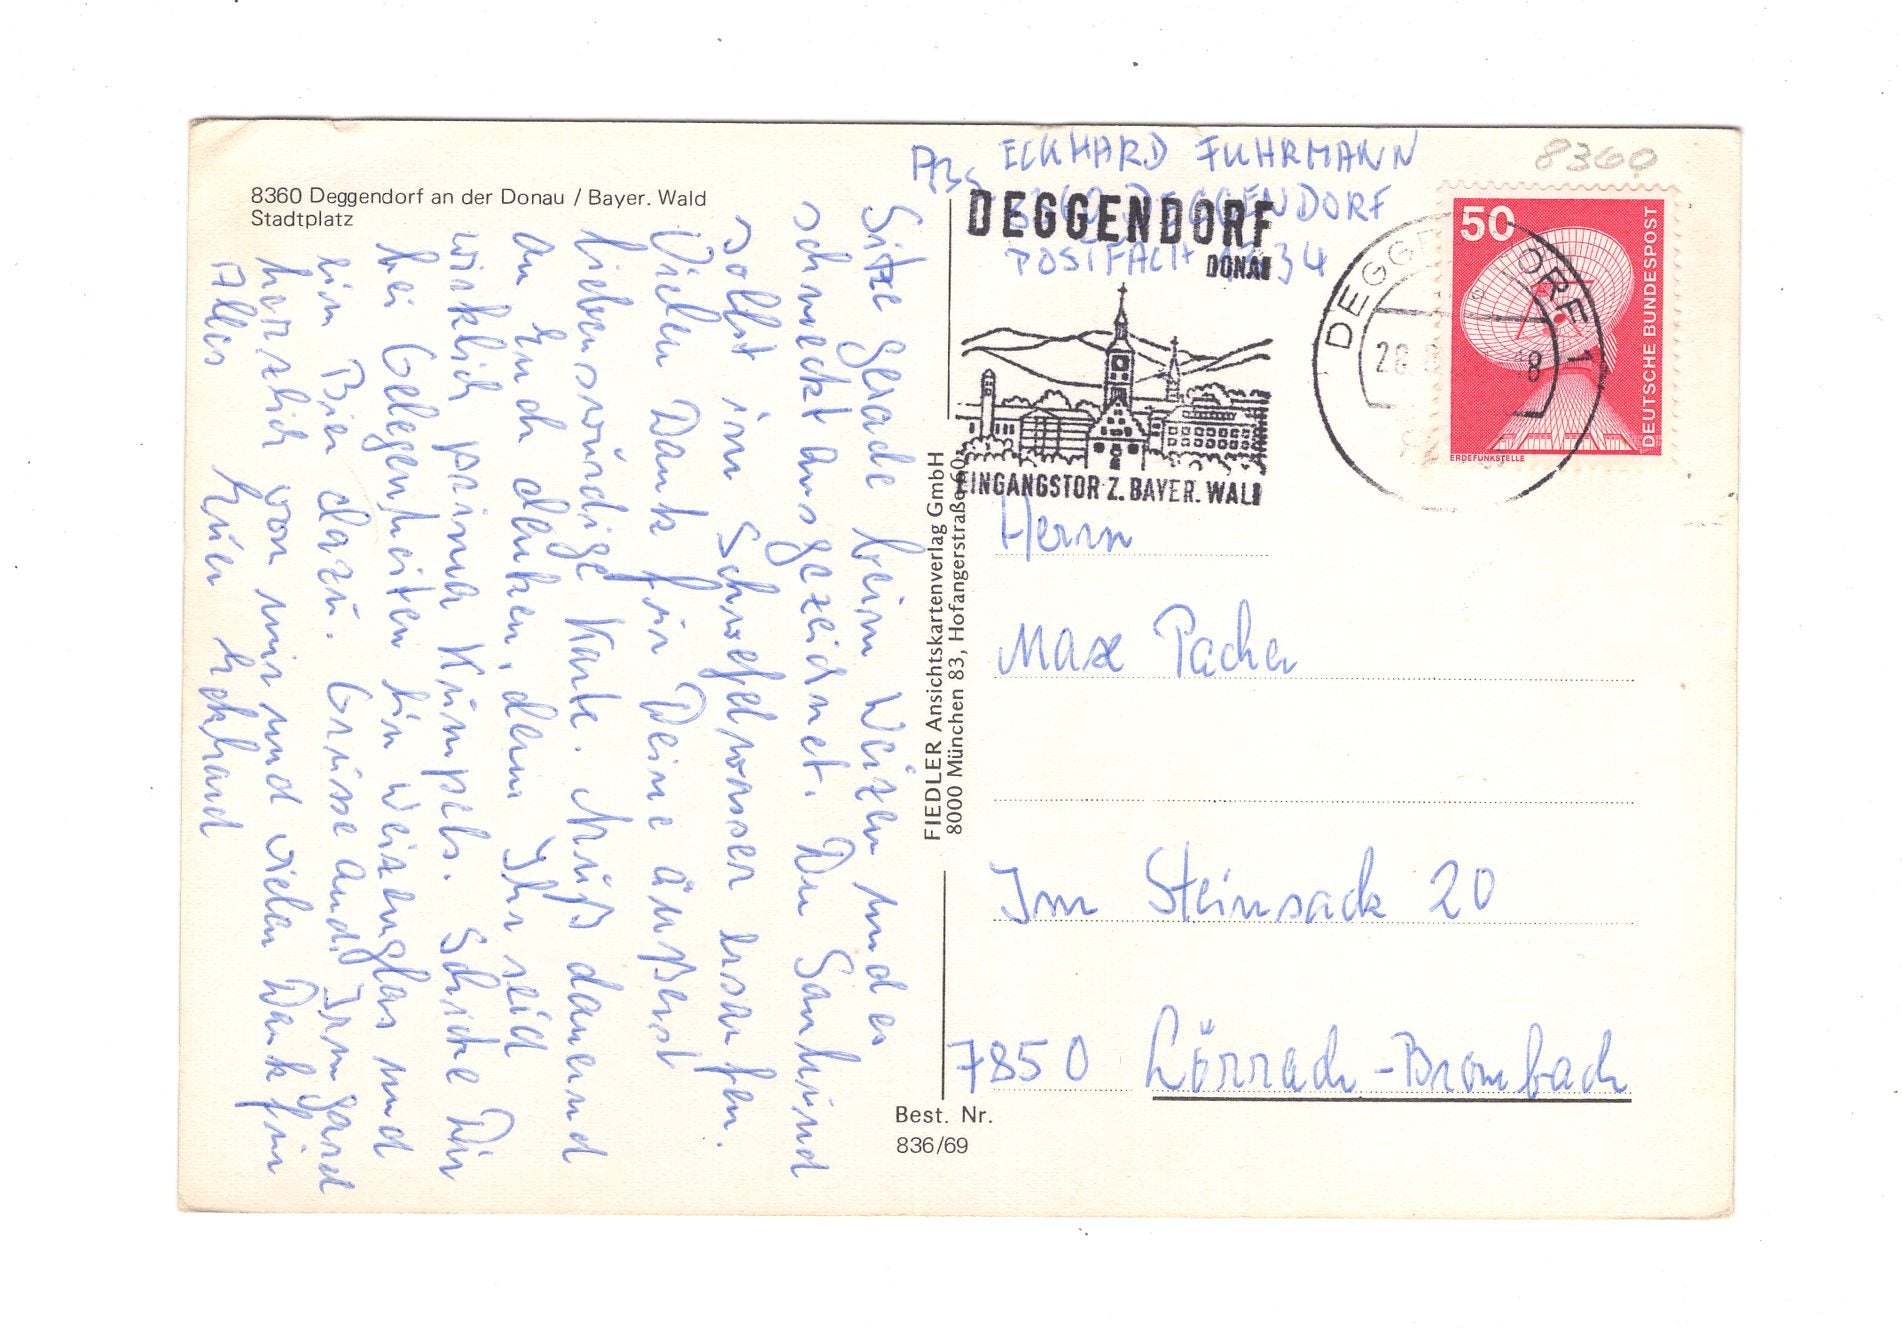 8360 Deggendorf an der Donau / Bayer. Wald
Stadtplatz
Sitze gerade beim Weizen und es
schmeckt ausgezeichnet. Du Sauhund
sollst im Schwefelwasser ersaufen.
Vielen Dank für Deine äußerst
liebenswürdige Karte. Muß dauernd
an Euch denken, denn Ihr seid
wirklich prima Kumpels. Schicke Dir
bei Gelegenheiten ein Weizenglas und
ein Bier dazu. Grüsse auch Irmgard
herzlich von mir und vielen Dank für
Alles Euer Eckhard
FIEDLER Ansichtskartenverlag GmbH
8000 München 83, Hofangerstraße 60
Best. Nr.
836/69
Abs ECKHARD FUHRMANN
DEGGENDORF
POSTFACH
8360
DEGGENDORF
DONAU
EINGANGSTOR Z. BAYER. WALD
DEGGENDORF 1
50
DEUTSCHE BUNDESPOST
ERDEFUNKSTELLE
Herrn
Max Pacher
Im Steinsack 20
7850 Lörrach-Brombach